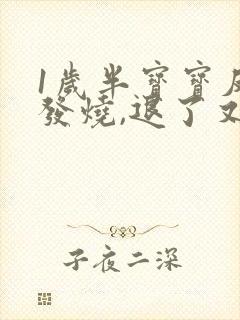 1歲半寶寶
發燒,退了又
子夜二深